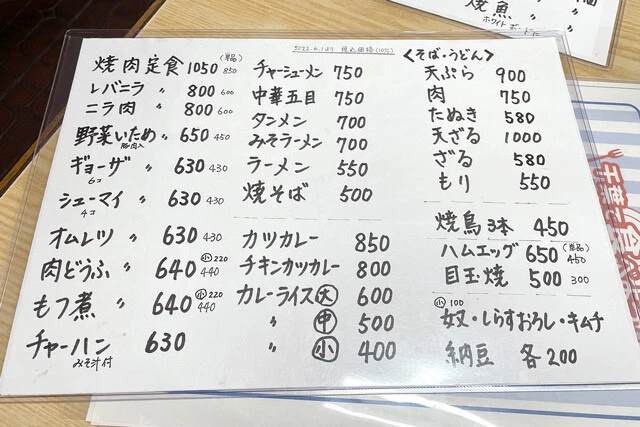 焼魚 〃
ホワイトボードに
2022.6.1より 税込価格(10%)
焼肉定食 1050 (単品) 850
レバニラ 〃 800 600
ニラ肉 〃 800 600
野菜いため 〃 650 450
豚肉入
ギョーザ 〃 630 430
6コ
シューマイ 〃 630 430
4コ
オムレツ 〃 630 430
肉どうふ 〃 640 小220 440
もつ煮 〃 640 小220 440
チャーハン 630
みそ汁付
チャーシューメン 750
中華五目 750
タンメン 700
みそラーメン 700
ラーメン 550
焼そば 500
カツカレー 850
チキンカツカレー 800
カレーライス 大 600
〃 中 500
〃 小 400
<そば・うどん>
天ぷら 900
肉 750
たぬき 580
天ざる 1000
ざる 580
もり 550
焼鳥3本 450
ハムエッグ 650 (単品) 450
目玉焼 500 300
小100
奴・しらすおろし・キムチ
納豆 各200